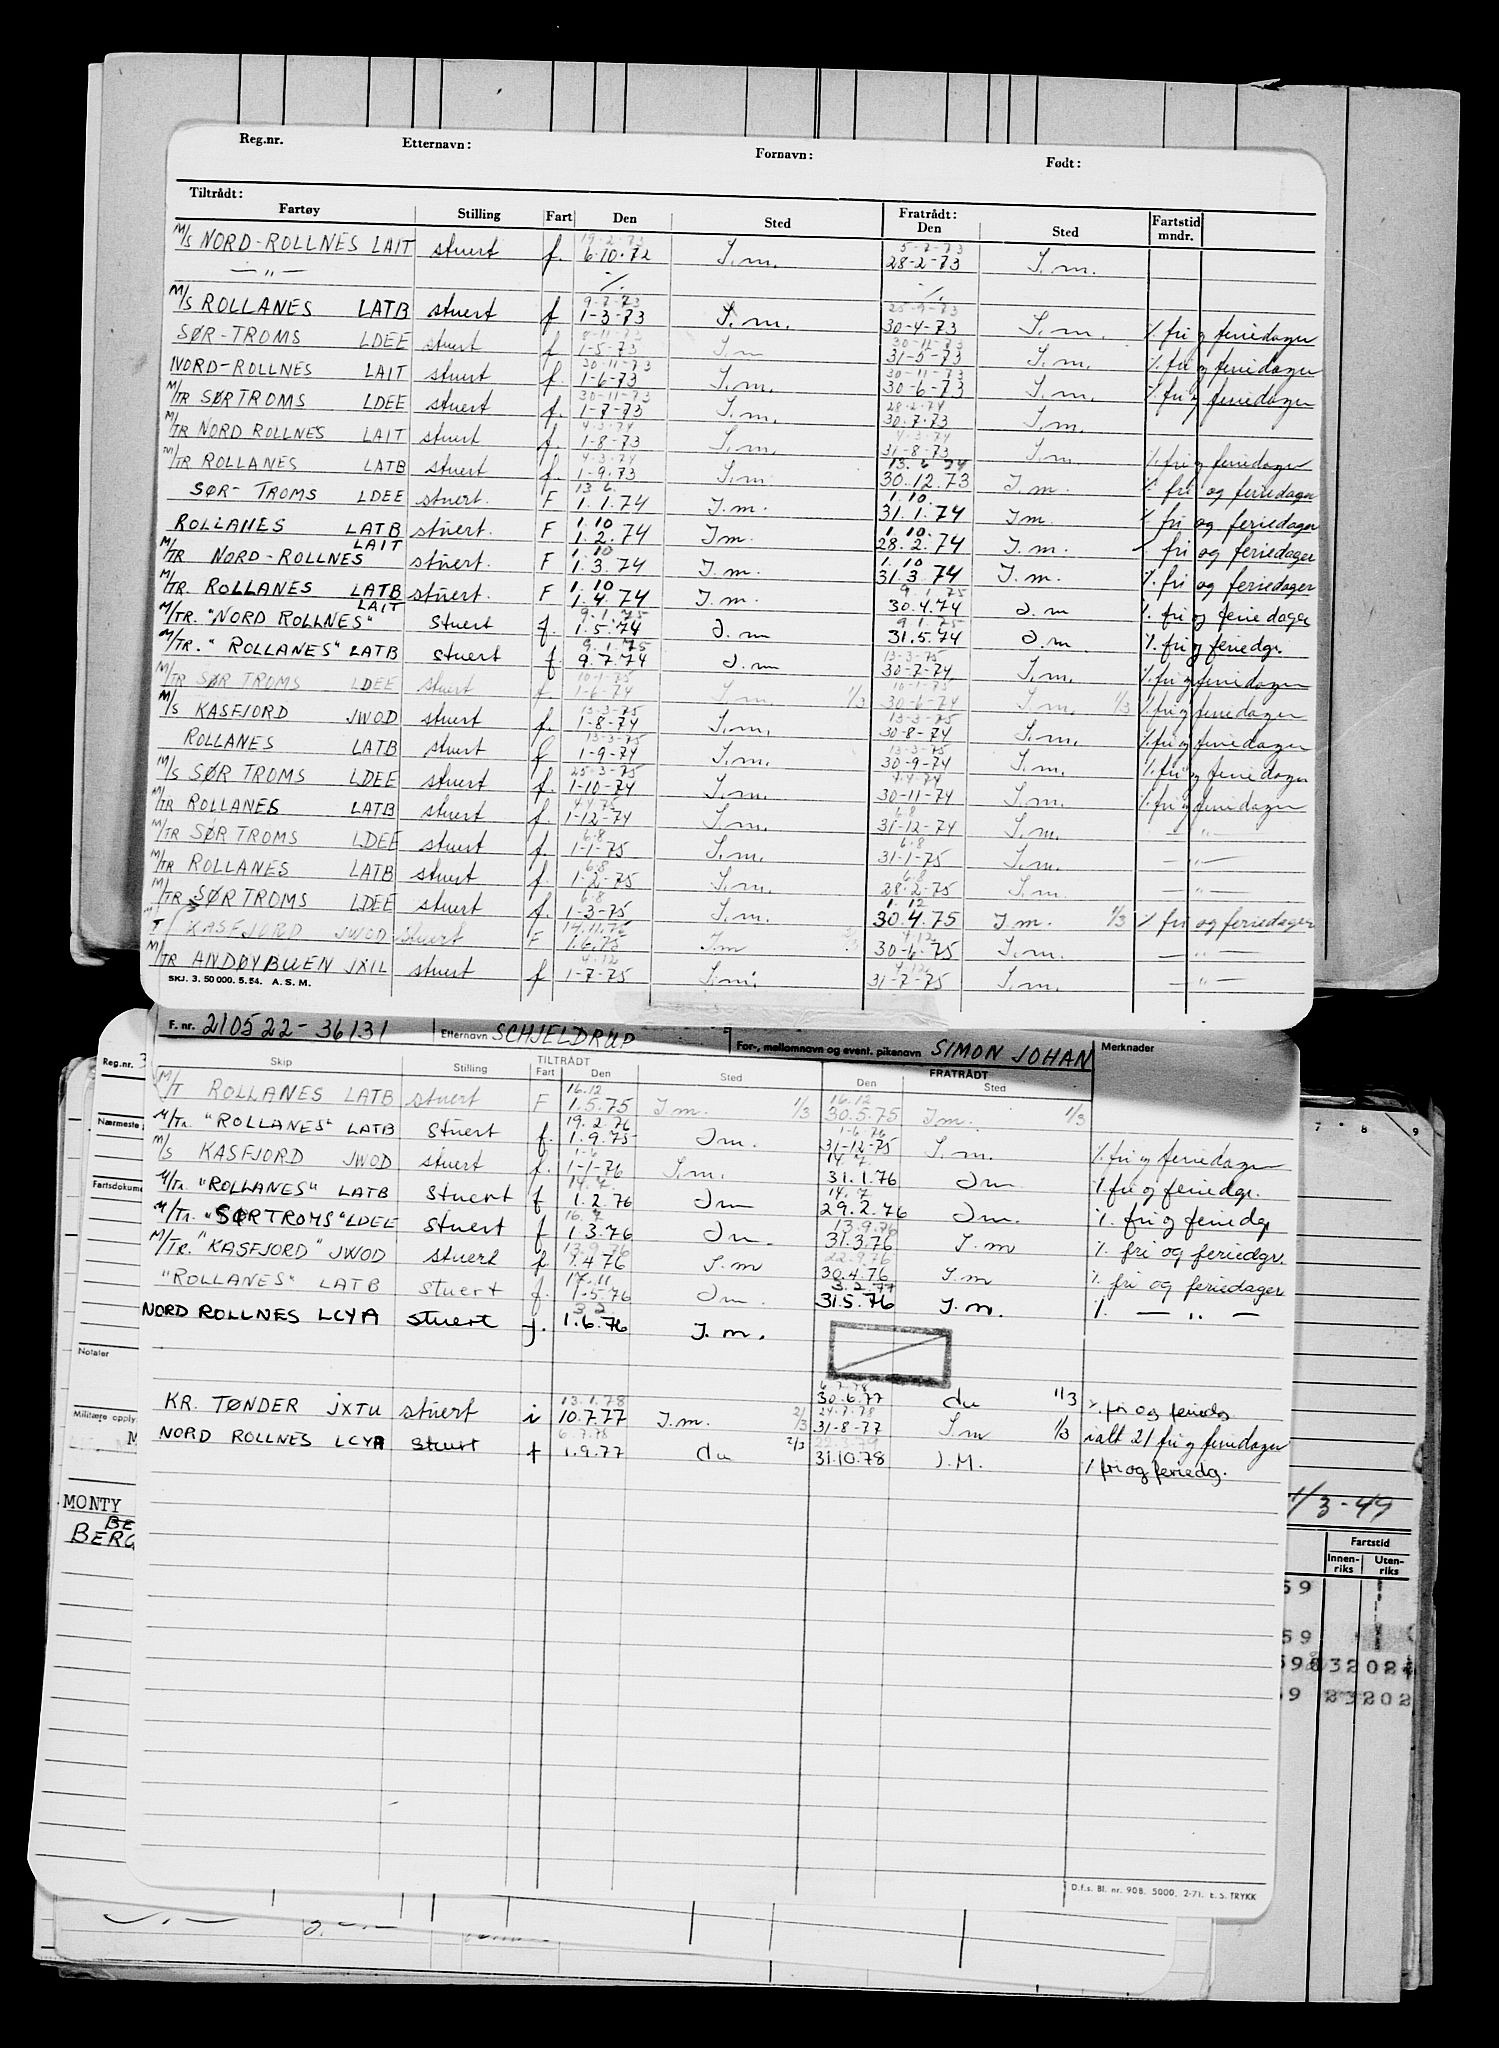 Reg.nr. Etternavn: Fornavn: Født:
Tiltrådt: Fratrådt: Fartstid
Fartøy Stilling Fart Den Sted Den Sted mndr.
19-2-73 5-7-73
M/S NORD-ROLLNES LAIT stuert f. 6.10.72 I.m. 28-2-73 I.m.
— „ — ./. ./.
9-7-73 25-9-73
M/S ROLLANES LATB stuert f 1-3-73 I.m. 30-4-73 I.m. ./. fri og feriedager
8-11-73 30-11-73
SØR-TROMS LDEE stuert f 1-5-73 I.m 31-5-73 I.m. ./. fri og feriedager
30-11-73 30-11-73
NORD-ROLLNES LAIT stuert f. 1-6-73 I.m. 30-6-73 I.m. ./. fri og feriedager
30-11-73 28-2-74
M/TR SØR TROMS LDEE stuert f. 1-7-73 I.m. 30.7.73 I.m.
4-3-74 4-3-74
M/TR NORD ROLLNES LAIT stuert f. 1-8-73 I.m. 31-8-73 I.m. ./. fri og feriedager
4-3-74 13.6 74
M/TR ROLLANES LATB stuert f. 1-9.73 I.m. 30.12.73 I.m. ./. fri og feriedager
13 6 1.10.
SØR-TROMS LDEE stuert. F 1.1.74 I.m. 31.1.74 I m. ./. fri og feriedager
1.10 1.10.
ROLLANES LATB stuert. F 1.2.74 I m. 28.2.74 I.m. ./. fri og feriedager
1.10 1.10
M/TR NORD-ROLLNES LAIT stuert. F 1.3.74 I.m. 31.3.74 I.m. ./. fri og feriedager
1.10 9.1.75
M/TR. ROLLANES LATB stuert. F 1.4.74 I.m. 30.4.74 I.m ./. fri og feriedager
9.1.75 9.1.75
M/TR. "NORD ROLLNES" LAIT stuert f. 1.5.74 I.m 31.5.74 I.m ./. fri og feriedgr.
9.1.75 13-3-75
M/TR. "ROLLANES" LATB stuert f 9.7.74 I.m 30-7-74 I.m. ./. fri og feriedager
10-1-75 10-1-75
M/TR SØR TROMS LDEE stuert f 1-6-74 I.m 1/3 30-6-74 I.m. 1/3 ./. fri og feriedager
13-3-75 13-3-75
M/S KASFJORD JWOD stuert f. 1-8-74 I.m. 30-8-74 I.m. ./. fri og feriedager
13-3-75 13-3-75
ROLLANES LATB stuert f 1-9-74 I.m. 30-9-74 I.m. ./. fri og feriedager
25-3-75 7.4.74
M/S SØR TROMS LDEE stuert f. 1-10-74 I.m. 30-11-74 I.m. ./. fri og feriedager
4.4.75 6.8
M/TR ROLLANES LATB stuert f. 1-12-74 I.m. 31-12-74 I.m. — „ —
6.8 6.8
M/TR SØR TROMS LDEE stuert f. 1-1-75 I.m. 31-1-75 I.m. — „ —
6.8 6.8
M/TR ROLLANES LATB stuert f. 1-2-75 I.m. 28-2-75 I.m — „ —
6.8 1.12
M/TR SØR TROMS LDEE stuert f. 1-3-75 I.m. 30.4.75 I m. 1/3 ./. fri og feriedager
17.11.76 4.12
KASFJORD JWOD stuert F 1.6.75 I m 30-6-75 I.m. — „ —
4.12 4.12
M/TR ANDØYBUEN JXIL stuert f 1-7-75 I.m. 31-7-75 I.m. — „ —
SKJ. 3. 50 000. 5. 54. A. S. M.
F. nr. 210522-36131 Etternavn SCHJELDRUP For-, mellomnavn og event. pikenavn SIMON JOHAN Merknader
Reg.nr. 3
TILTRÅDT FRATRÅDT
Skip Stilling Fart Den Sted Den Sted
16.12 16.12
M/T ROLLANES LATB stuert F 1.5.75 I m. 1/3 30.5.75 I m. 1/3
19.2.76 1-6-76
M/Tr. "ROLLANES" LATB stuert f. 1.9.75 I m. 31-12-75 I.m. ./. fri og feriedager
1-6 14.7
M/S KASFJORD JWOD stuert f. 1-1-76 I.m. 31.1.76 I m ./. fri og feriedgr.
14.7. 14.7
M/Tr. "ROLLANES" LATB stuert f 1.2.76 I m 29.2.76 I m. ./. fri og feriedgr
16.7 13.9.76
M/Tr. "SØRTROMS" LDEE stuert f 1.3.76 I m. 31.3.76 I.m ./. fri og feriedgr.
13.9.76 22.9.76
M/TR. "KASFJORD" JWOD stuert f 1.4.76 I.m 30.4.76 I.m ./. fri og feriedager
17.11 3.2.77
"ROLLANES" LATB stuert f. 1.5.76 I m. 31.5.76 I.m. ./. — „ —
3.2
NORD ROLLNES LCYA stuert f. 1.6.76 I.m.
6.7.78
30.6.77 du 1/3 ./. fri og feriedg
13.1.78 24.7.78
KR. TØNDER JXTU stuert i 10.7.77 I.m. 2/3 31-8-77 I.m 1/3 ialt 21 fri og feriedager
6.7.78 22.3.79
NORD ROLLNES LCYA stuert f 1.9.77 du 2/3 31.10.78 I.M. ./. fri og feriedg.
Nærmeste
Fartsdokume
Notater
Militære opply
M
MONTY
BE
BERG
7 8 9
1/3-49
Fartstid
Innen-riks Uten-riks
59
59
D.f.s. Bl. nr. 908. 5000. 2-71. E. S. TRYKK